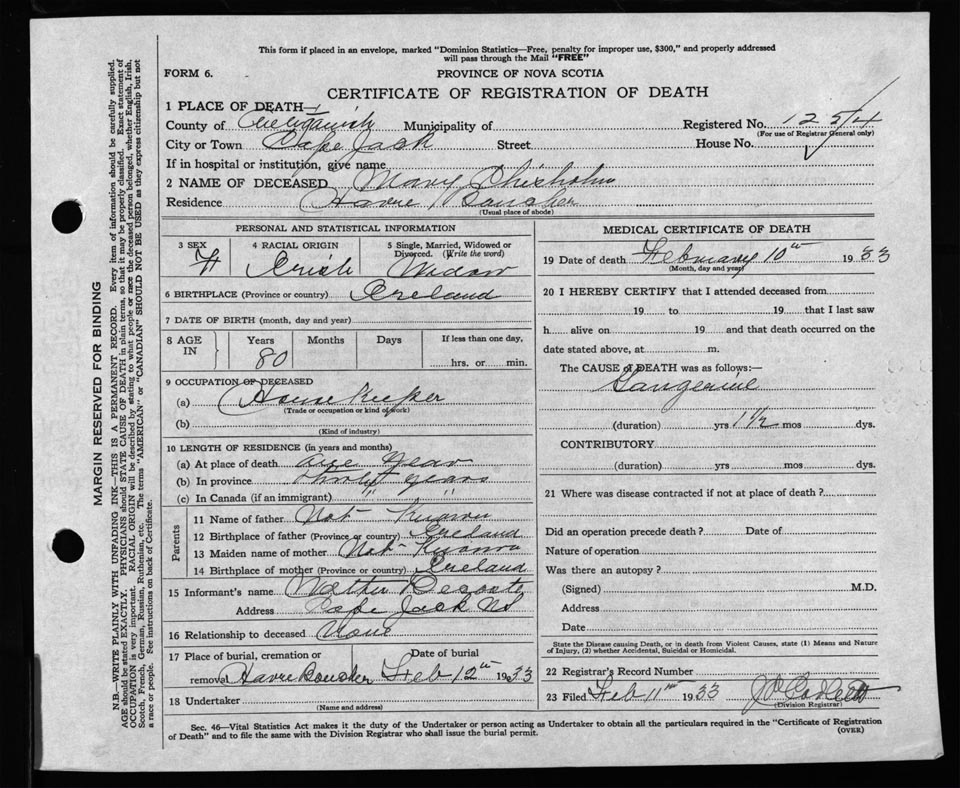 This form if placed in an envelope, marked "Dominion Statistics—Free, penalty for improper use, $300," and properly addressed
will pass through the Mail "FREE"
FORM 6.
PROVINCE OF NOVA SCOTIA
CERTIFICATE OF REGISTRATION OF DEATH
1 PLACE OF DEATH—
County of Antigonish Municipality of Registered No. 1254
(For use of Registrar General only)
City or Town Cape Jack Street House No.
If in hospital or institution, give name
2 NAME OF DECEASED Mary Chisholm
Residence Havre Boucher
(Usual place of abode)
PERSONAL AND STATISTICAL INFORMATION
3 SEX 4 RACIAL ORIGIN 5 Single, Married, Widowed or Divorced. (Write the word)
F Irish Widow
6 BIRTHPLACE (Province or country) Ireland
7 DATE OF BIRTH (month, day and year)
8 AGE IN Years Months Days If less than one day,
80 hrs. or min.
9 OCCUPATION OF DECEASED
(a) House Keeper
(Trade or occupation or kind of work)
(b)
(Kind of industry)
10 LENGTH OF RESIDENCE (in years and months)
(a) At place of death one year
(b) In province years
(c) In Canada (if an immigrant) " "
Parents
11 Name of father Not Known
12 Birthplace of father (Province or country) Ireland
13 Maiden name of mother Not Known
14 Birthplace of mother (Province or country) Ireland
15 Informant's name Walter Decoste
Address Cape Jack NS
16 Relationship to deceased None
17 Place of burial, cremation or Date of burial
removal Havre Boucher Feb 12th 1933
18 Undertaker
(Name and address)
MEDICAL CERTIFICATE OF DEATH
19 Date of death February 10th 1933
(Month, day and year)
20 I HEREBY CERTIFY that I attended deceased from
19 to 19 that I last saw
h alive on 19 and that death occurred on the
date stated above, at m.
The CAUSE of DEATH was as follows:—
Gangerine
(duration) yrs 1½ mos dys.
CONTRIBUTORY
(duration) yrs mos dys.
21 Where was disease contracted if not at place of death?
Did an operation precede death? Date of
Nature of operation
Was there an autopsy?
(Signed) M.D.
Address
Date
State the Disease causing Death, or in death from Violent Causes, state (1) Means and Nature
of Injury, (2) whether Accidental, Suicidal or Homicidal.
22 Registrar's Record Number
23 Filed Feb 11th 1933
(Division Registrar)
Sec. 46—Vital Statistics Act makes it the duty of the Undertaker or person acting as Undertaker to obtain all the particulars required in the "Certificate of Registration
of Death" and to file the same with the Division Registrar who shall issue the burial permit. (OVER)
MARGIN RESERVED FOR BINDING
N.B.—WRITE PLAINLY WITH UNFADING INK—THIS IS A PERMANENT RECORD. Every item of information should be carefully supplied.
AGE should be stated EXACTLY. PHYSICIANS should STATE CAUSE OF DEATH in plain terms, so that it may be properly classified. Exact statement of
OCCUPATION is very important. RACIAL ORIGIN will be described by stating to what people or race the deceased person belonged, whether English, Irish,
Scotch, French, German, Russian, Ruthenian, etc. The terms "AMERICAN" or "CANADIAN" SHOULD NOT BE USED as they express citizenship but not
a race or people. See instructions on back of Certificate.